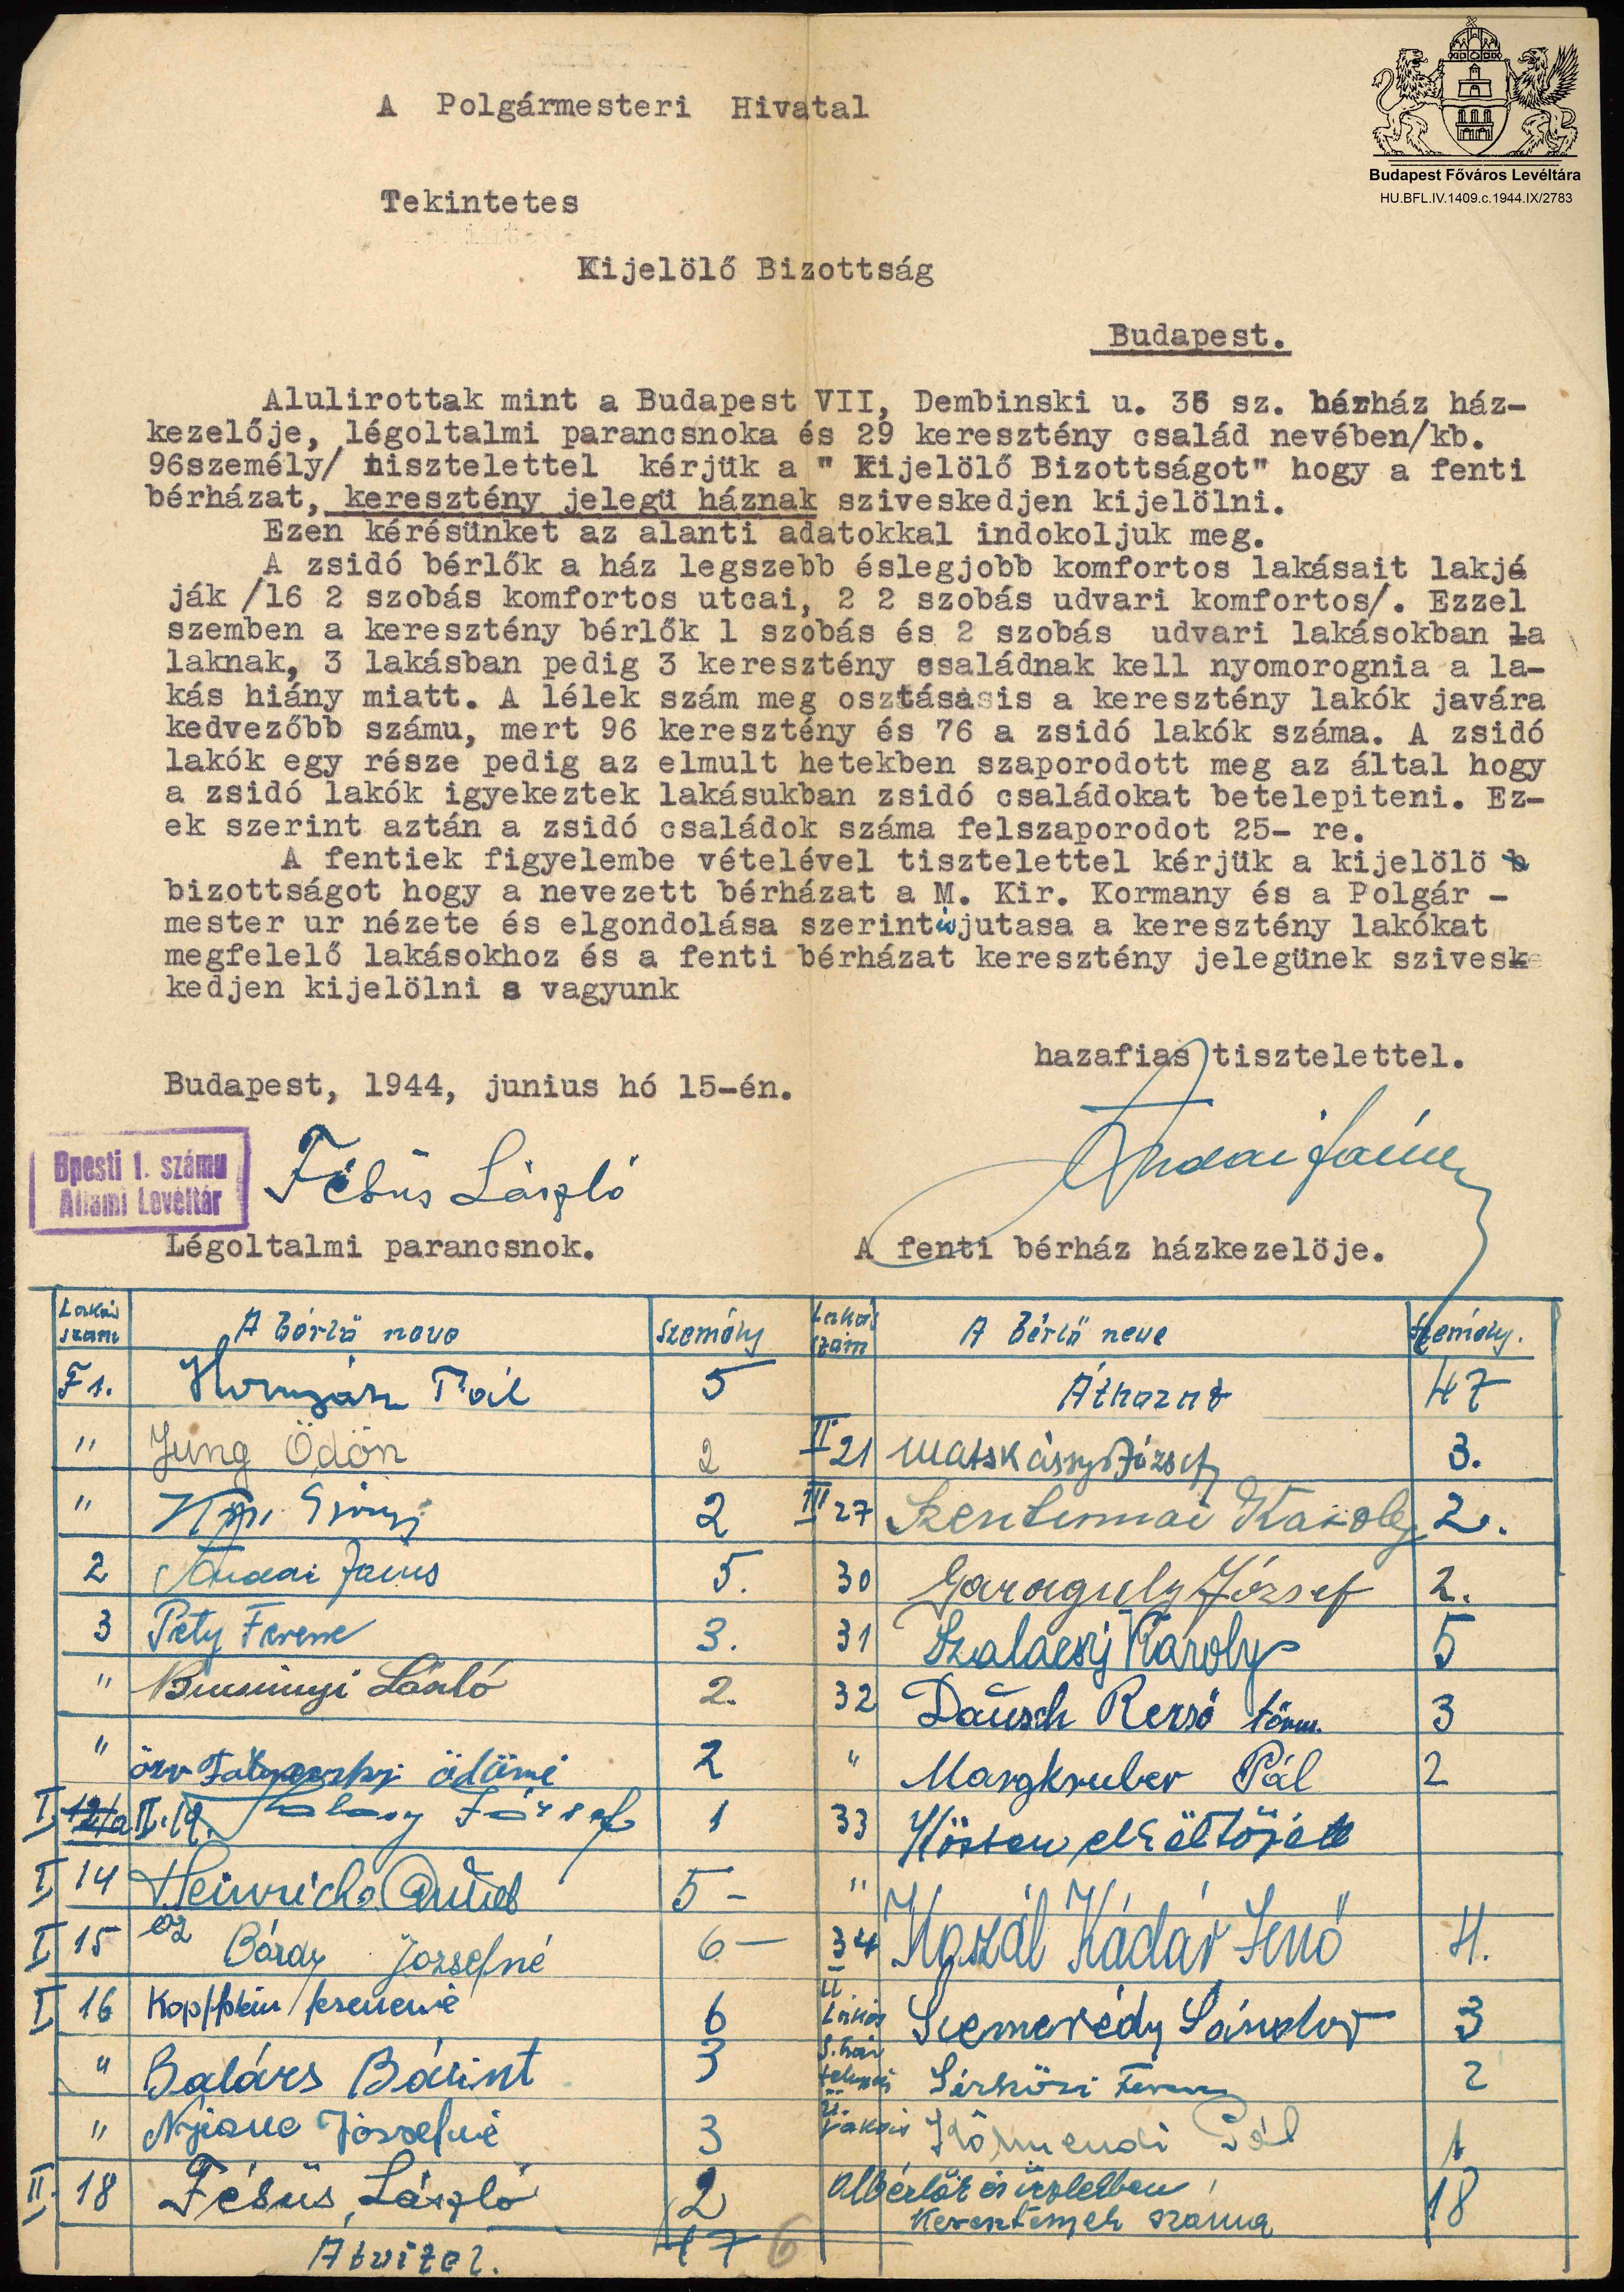 Budapest Főváros Levéltára
HU.BFL.IV.1409.c.1944.IX/2783
A Polgármesteri Hivatal
Tekintetes
Kijelölő Bizottság
Budapest.
Alulirottak mint a Budapest VII, Dembinski u. 36 sz. bérház ház-
kezelője, légoltalmi parancsnoka és 29 keresztény család nevében/kb.
96személy/ tisztelettel kérjük a " Kijelölő Bizottságot" hogy a fenti
bérházat, keresztény jelegü háznak sziveskedjen kijelölni.
Ezen kérésünket az alanti adatokkal indokoljuk meg.
A zsidó bérlők a ház legszebb éslegjobb komfortos lakásait lakjá
ják /16 2 szobás komfortos utcai, 2 2 szobás udvari komfortos/. Ezzel
szemben a keresztény bérlők 1 szobás és 2 szobás udvari lakásokban la
laknak, 3 lakásban pedig 3 keresztény családnak kell nyomorognia a la-
kás hiány miatt. A lélek szám meg osztásasis a keresztény lakók javára
kedvezőbb számu, mert 96 keresztény és 76 a zsidó lakók száma. A zsidó
lakók egy része pedig az elmult hetekben szaporodott meg az által hogy
a zsidó lakók igyekeztek lakásukban zsidó családokat betelepiteni. Ez-
ek szerint aztán a zsidó családok száma felszaporodot 25- re.
A fentiek figyelembe vételével tisztelettel kérjük a kijelölö b
bizottságot hogy a nevezett bérházat a M. Kir. Kormany és a Polgár -
mester ur nézete és elgondolása szerint is jutasa a keresztény lakókat
megfelelő lakásokhoz és a fenti bérházat keresztény jelegünek szíveske
kedjen kijelölni s vagyunk
hazafias tisztelettel.
Budapest, 1944, junius hó 15-én.
Bpesti 1. számu
Állami Levéltár
Fésüs László
Andai János
Légoltalmi parancsnok.
A fenti bérház házkezelöje.
Lakás szám A bérlő neve személy Lakás szám A Bérlő neve személy.
F 1. Pál 5 Áthozat 47
" Jung Ödön 2 II 21 József 3.
" 2 III 27 Károly 2.
2 Andai János 5. 30 Garaguly József 2.
3 Pety Ferenc 3. 31 Károly 5
" László 2. 32 Dausch Rezső 3
" özv Ödönné 2 " Margkruber Pál 2
I 12/a II.19. József 1 33
I 14 Heinrich 5- "
I 15 öz Báray Jozsefné 6- 34 Kádár Jenő 4.
I 16 6 II Lakás Szemerédy Sándor 3
" Balázs Bálint 3 Sírközi Ferenc 2
" Józsefné 3 Lakás Körmendi Pál 1
II. 18 Fésüs László 2 Albérlők és üzletben keresztenyek száma 18
Átvitel. 47 6